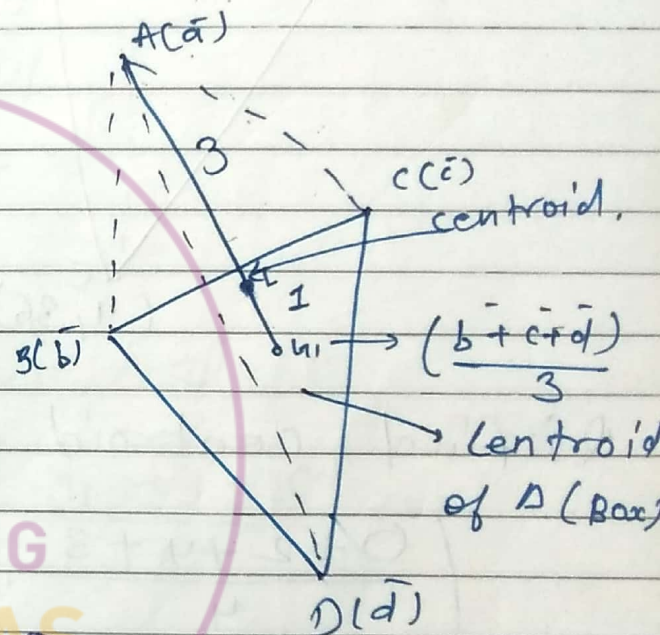 A(ā)
3
C(c̄)
centroid.
1
B(b̄)
G1 → (b̄ + c̄ + d̄)
3
Centroid
of Δ (Base)
G
D(d̄)